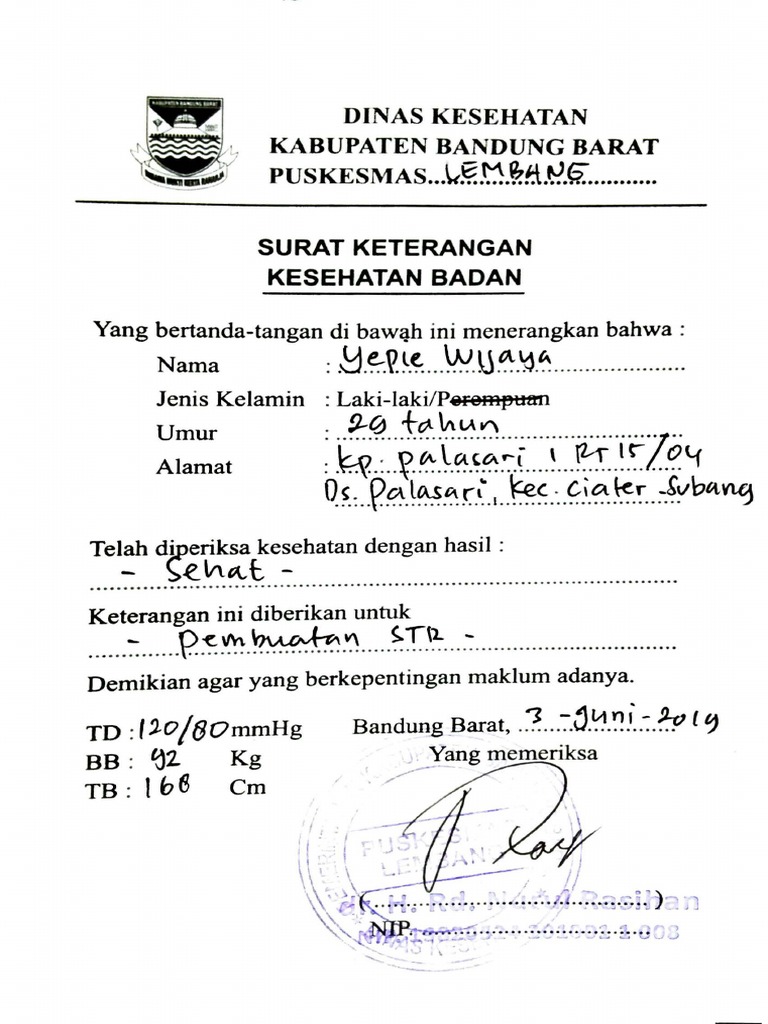 KABUPATEN BANDUNG BARAT
DINAS KESEHATAN
KABUPATEN BANDUNG BARAT
PUSKESMAS...LEMBANG...........
SURAT KETERANGAN
KESEHATAN BADAN
Yang bertanda-tangan di bawah ini menerangkan bahwa :
Nama : Yepie Wijaya
Jenis Kelamin : Laki-laki/Perempuan
Umur : 29 tahun
Alamat : Kp. palasari 1 RT 15/04
Ds. Palasari, Kec. Ciater - Subang
Telah diperiksa kesehatan dengan hasil :
- Sehat -
Keterangan ini diberikan untuk
- Pembuatan STR -
Demikian agar yang berkepentingan maklum adanya.
TD : 120/80 mmHg Bandung Barat, 3 - Juni - 2019
BB : 92 Kg Yang memeriksa
TB : 168 Cm
PUSKESMAS
LEMBANG
(..............................)
dr. H. Rd. Nurul Rasihan
NIP.